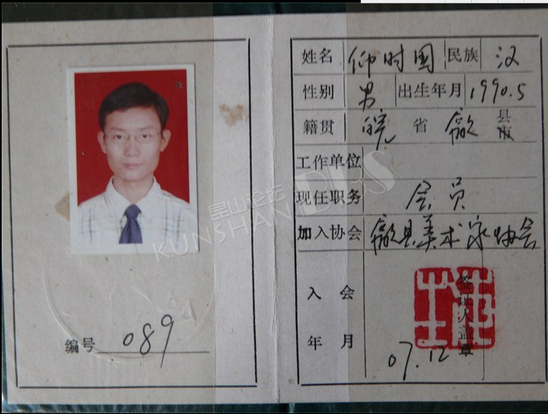 编号 089
姓名 仰时国 民族 汉
性别 男 出生年月 1990.5
籍贯 皖 省 歙 县市
工作单位
现任职务 会员
加入协会 歙县美术家协会
入会年月 07.12
管理人盖章
昆山论坛
KUNSHAN BBS